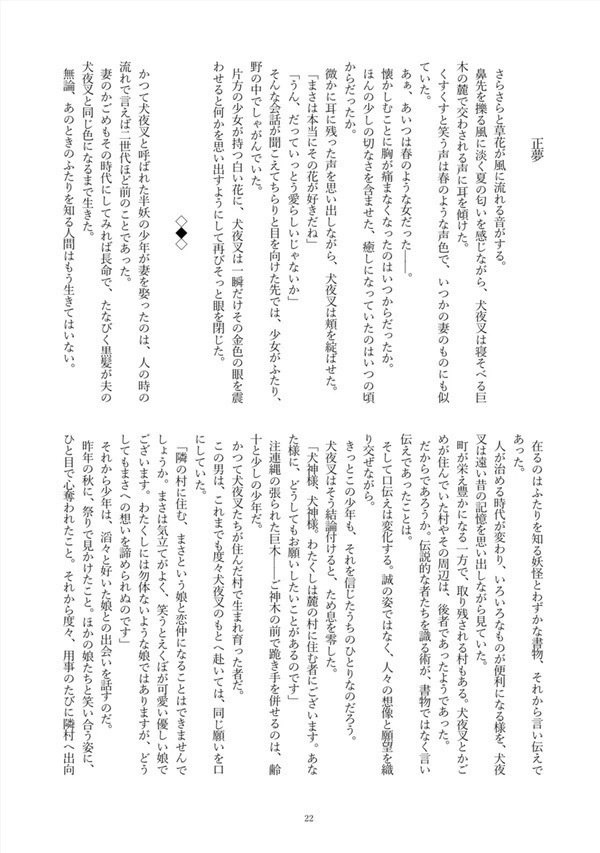 正夢
さらさらと草花が風に流れる音がする。
鼻先を擽る風に淡く夏の匂いを感じながら、犬夜叉は寝そべる巨
木の麓で交わされる声に耳を傾けた。
くすくすと笑う声は春のような声色で、いつかの妻のものにも似
ていた。
あぁ、あいつは春のような女だった――。
懐かしむことに胸が痛まなくなったのはいつからだったか。
ほんの少しの切なさを含ませた、癒しになっていたのはいつの頃
からだったか。
微かに耳に残った声を思い出しながら、犬夜叉は頬を綻ばせた。
「まさは本当にその花が好きだね」
「うん、だっていっとう愛らしいじゃないか」
そんな会話が聞こえてちらりと目を向けた先では、少女がふたり、
野の中でしゃがんでいた。
片方の少女が持つ白い花に、犬夜叉は一瞬だけその金色の眼を震
わせると何かを思い出すようにして再びそっと眼を閉じた。
◇◆◇
かつて犬夜叉と呼ばれた半妖の少年が妻を娶ったのは、人の時の
流れで言えば二世代ほど前のことであった。
妻のかごめもその時代にしてみれば長命で、たなびく黒髪が夫の
犬夜叉と同じ色になるまで生きた。
無論、あのときのふたりを知る人間はもう生きてはいない。
在るのはふたりを知る妖怪とわずかな書物、それから言い伝えで
あった。
人が治める時代が変わり、いろいろなものが便利になる様を、犬夜
叉は遠い昔の記憶を思い出しながら見ていた。
町が栄え豊かになる一方で、取り残される村もある。犬夜叉とかご
めが住んでいた村やその周辺は、後者であったようであった。
だからであろうか。伝説的な者たちを識る術が、書物ではなく言い
伝えであったことは。
そして口伝えは変化する。誠の姿ではなく、人々の想像と願望を織
り交ぜながら。
きっとこの少年も、それを信じたうちのひとりなのだろう。
犬夜叉はそう結論付けると、ため息を零した。
「犬神様、犬神様。わたくしは麓の村に住む者にございます。あな
た様に、どうしてもお願いしたいことがあるのです」
注連縄の張られた巨木――ご神木の前で跪き手を併せるのは、齢
十と少しの少年だ。
かつて犬夜叉たちが住んだ村で生まれ育った者だ。
この男は、これまでも度々犬夜叉のもとへ赴いては、同じ願いを口
にしていた。
「隣の村に住む、まさという娘と恋仲になることはできませんで
しょうか。まさは気立てがよく、笑うとえくぼが可愛い優しい娘で
ございます。わたくしには勿体ないような娘ではありますが、どう
してもまさへの想いを諦められぬのです」
それから少年は、滔々と好いた娘との出会いを話すのだ。
昨年の秋に、祭りで見かけたこと。ほかの娘たちと笑い合う姿に、
ひと目で心奪われたこと。それから度々、用事のたびに隣村へ出向
22